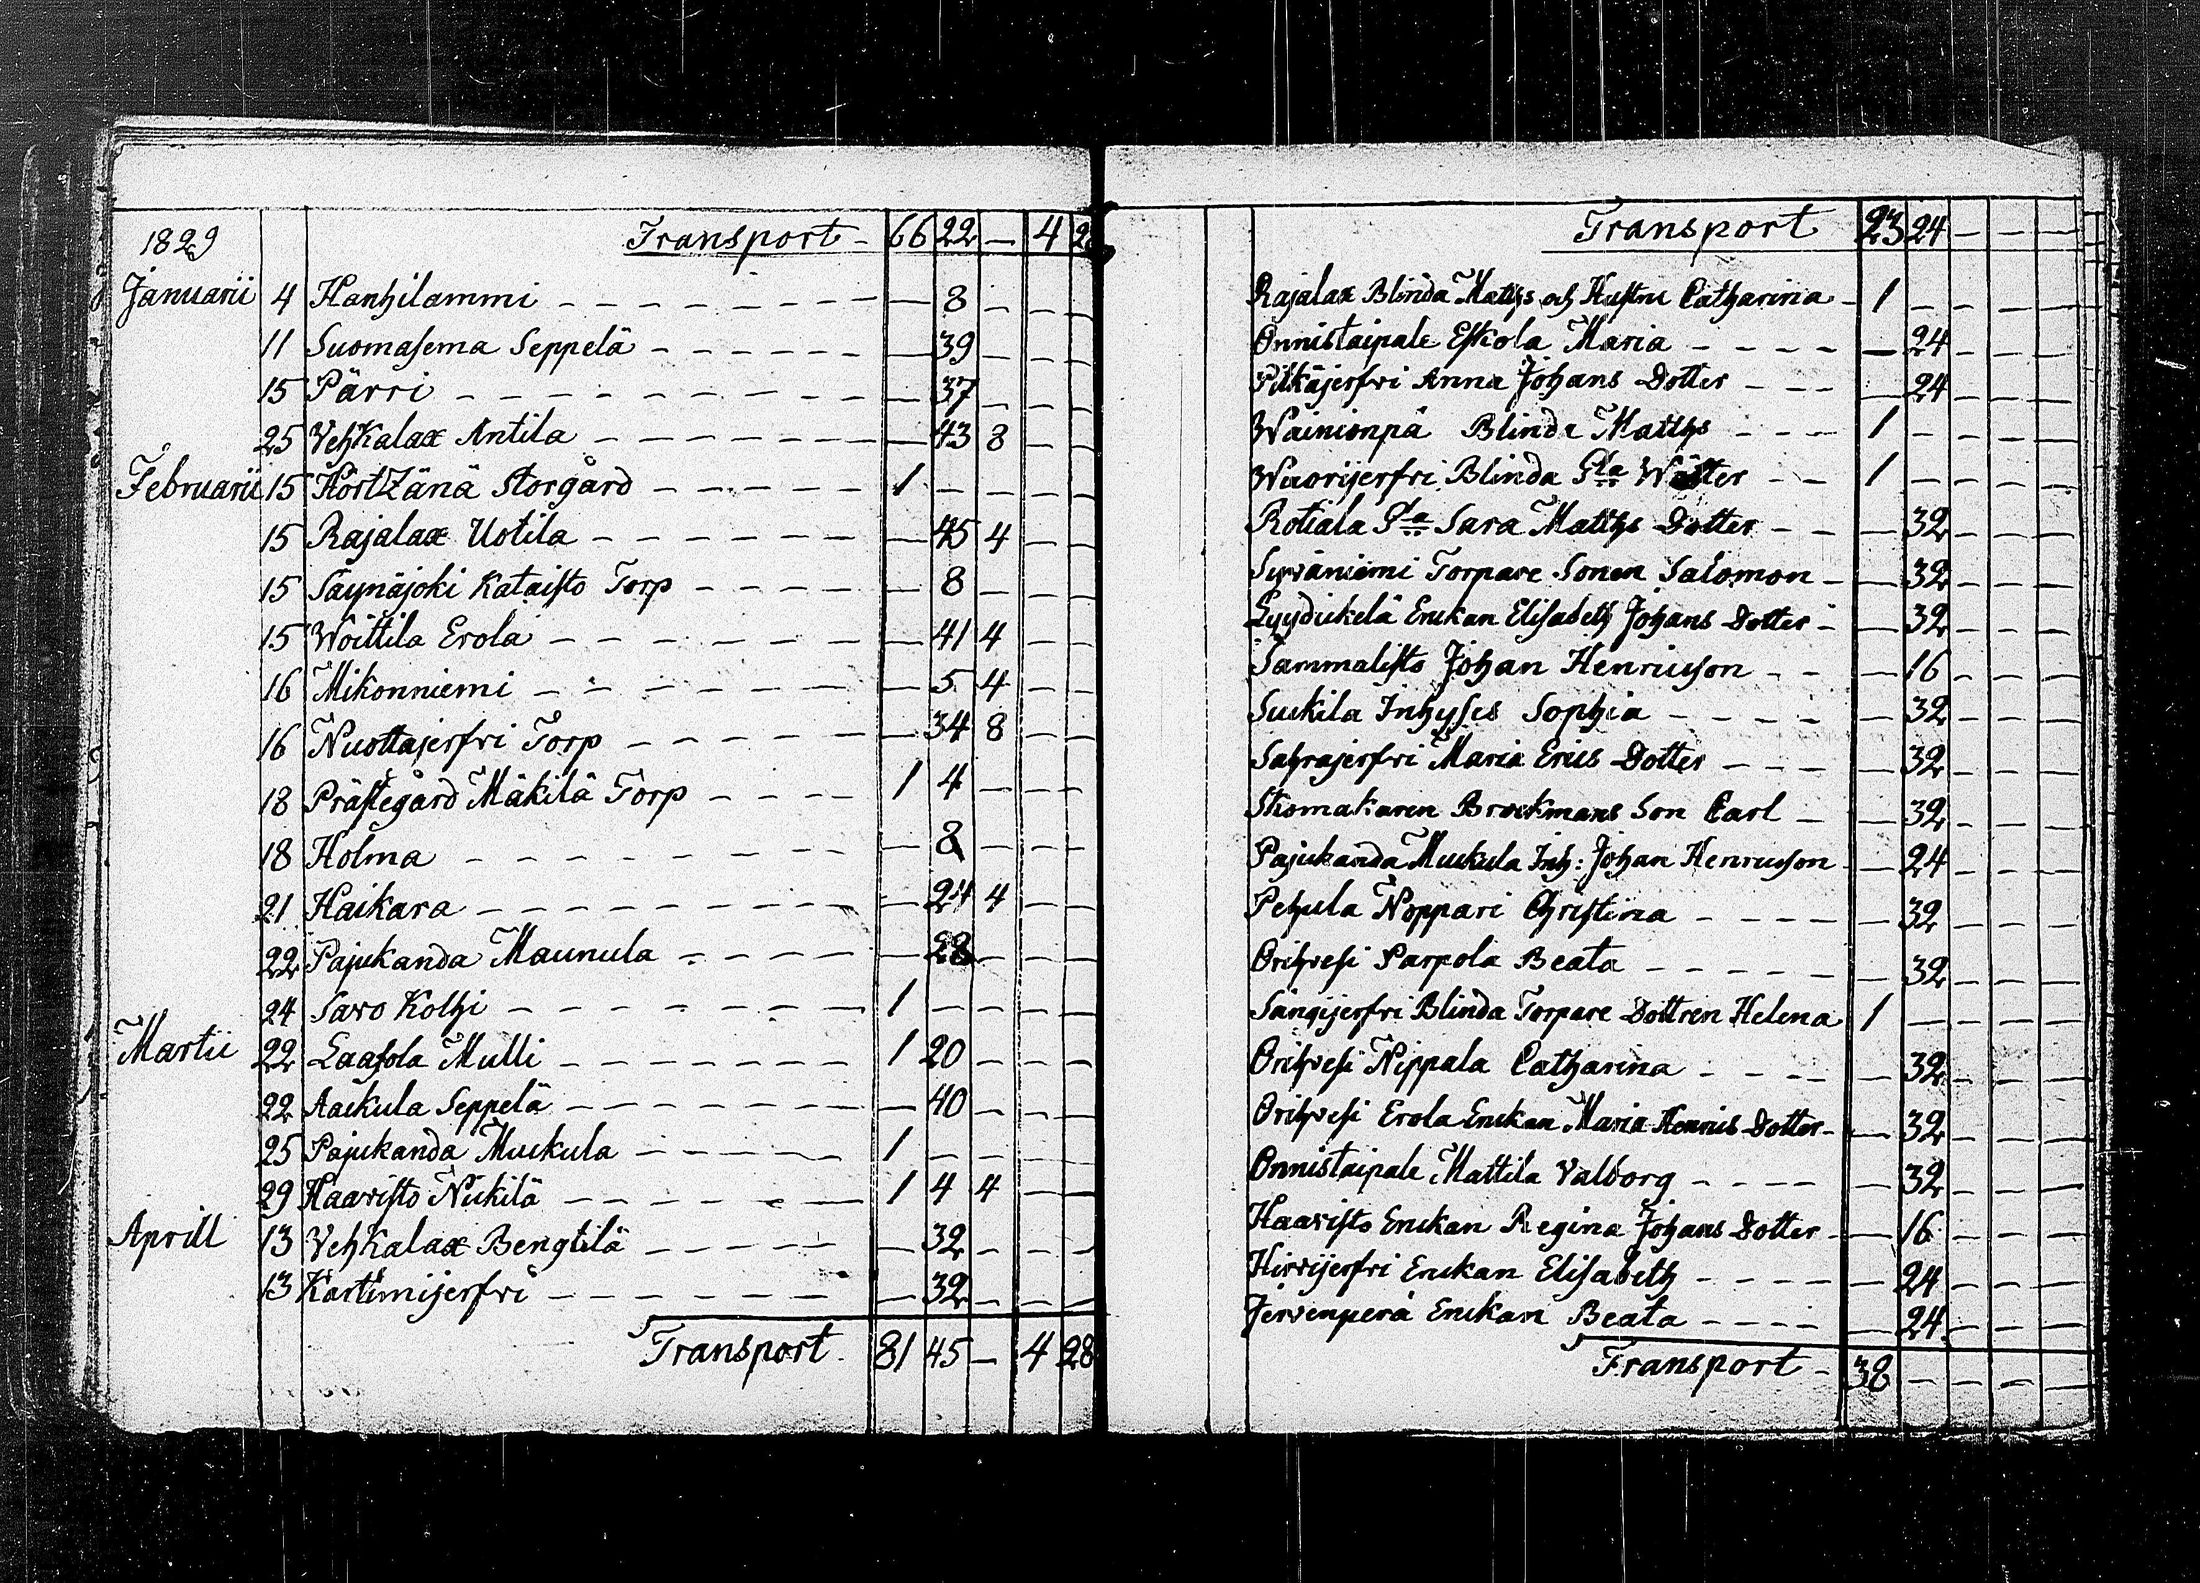 1829 Transport - 66 22 — 4 28
Januarii 4 Hanhilammi — 8 — — —
11 Suomasema Seppelä — 39 — — —
15 Pärri — 37 — — —
25 Vehkalax Antila — 43 8 — —
Februarii 15 Körtzänä Storgård 1 — — — —
15 Rajalax Uotila — 45 4 — —
15 Säynäjoki Kataisto Torp — 8 — — —
15 Woittila Erola — 41 4 — —
16 Mikonniemi — 5 4 — —
16 Nuottajerfvi Torp — 34 8 — —
18 Prästegård Mäkilä Torp 1 4 — — —
18 Holma — 8 — — —
21 Haikara — 24 4 — —
22 Pajukanda Maunula — 28 — — —
24 Savo Kolhi 1 — — — —
Martii 22 Laasola Mulli 1 20 — — —
22 Aackula Seppelä — 40 — — —
25 Pajukanda Muckula 1 — — — —
29 Haavisto Nickilä 1 4 4 — —
Aprill 13 Vehkalax Bengtilä — 32 — — —
13 Kartimijerfvi — 32 — — —
Transport 81 45 — 4 28
Transport 23 24 — — —
Rajalax Blinda Matths och Hustru Catharina 1 — — — —
Onnistaipale Eskola Maria — 24 — — —
Pitkäjerfvi Anna Johans Dotter — 24 — — —
Wainionpä Blinda Matths 1 — — — —
Wuorijerfvi Blinda Gla Wäster 1 — — — —
Rotiala Gla Sara Matths Dotter — 32 — — —
Syväniemi Torpare Sonen Salomon — 32 — — —
Lyydickelä Enckan Elisabeth Johans Dotter — 32 — — —
Sammalisto Johan Henricsson — 16 — — —
Suckila Inhyses Sophia — 32 — — —
Sahrajerfvi Maria Erics Dotter — 32 — — —
Skomakaren Brockmans Son Carl — 32 — — —
Pajukanda Muckula Inh: Johan Henricsson — 24 — — —
Pehula Noppari Christina — 32 — — —
Orihvesi Parpola Beata — 32 — — —
Sängijerfvi Blinda Torpare Dottren Helena 1 — — — —
Orihvesi Nippala Catharina — 32 — — —
Orihvesi Erola Enckan Maria Henrics Dotter — 32 — — —
Onnistaipale Mattila Valborg — 32 — — —
Haavisto Enckan Regina Johans Dotter — 16 — — —
Hirvijerfvi Enckan Elisabeth — 24 — — —
Jervenperä Enckan Beata — 24 — — —
Transport - 38 — — — —